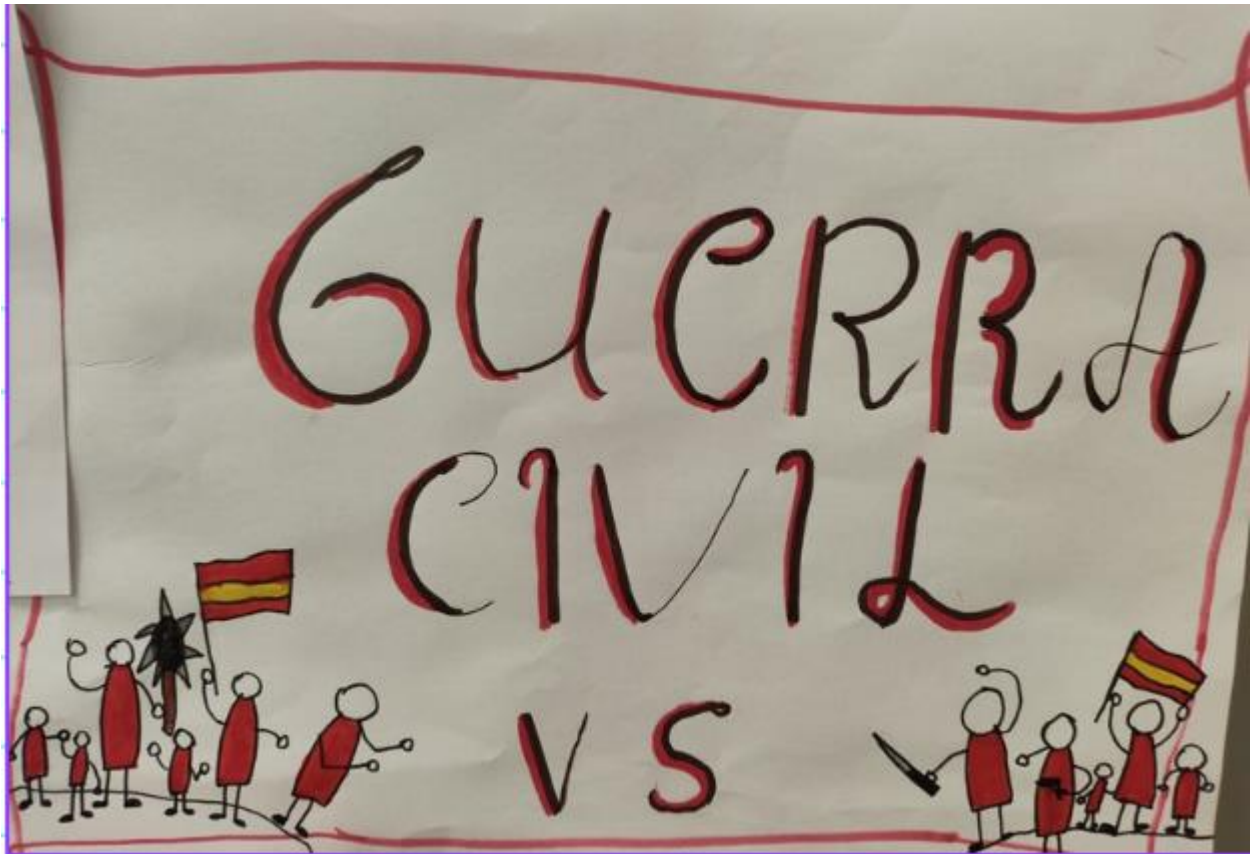 GUERRA
CIVIL
VS